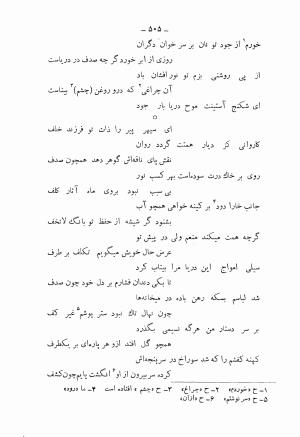 ـ ۵۰۵ ـ
خورم۱ از جود تو نان بر سر خوان دگران
روزی از ابر خورد گر چه صدف در دریاست
از پی روشنی بزم تو نور افشان باد
آن چراغی۲ که درو روغن (چشم)۳ بیناست
ای شکنج آستینت موج دریا بار جود
ای سپهر پیر را ذات تو فرزند خلف
کاروانی کز دیار همتت گردد روان
نقش پای ناقه‌اش گوهر دهد همچون صدف
روی بر خاک درت سوده‌است بهر کسب نور
بی سبب نبود بروی ماه آثار کلف
جانب خارا رود۴ بر کینه خواهی همچو آب
بشنود گر شیشه از حفظ تو بانگ لاتخف
گرچه همت میکند منعم ولی در پیش تو
عرض حال خویش میگویم تکلف بر طرف
سیلی امواج این دریا مرا بیتاب کرد
تا بکی دندان فشارم بر دل خود چون صدف
شد لباسم بسکه رهن باده در میخانه‌ها
چون نهال تاک نبود ستر پوشم۵ غیر کف
بر سر دستار من هرگه نسیمی بگذرد
همچو گل افتد ازو هر پاره‌ای بر یکطرف
کهنه کفشم را که شد سوراخ در سرپنجه‌اش
کرده سر بیرون از او۶ انگشت پایم چون کشف
۱ـ ح «خوردم» ۲ـ ح «چراغ» ۳ـ ح «چشم» افتاده است ۴ـ ما «رود»
۵ـ ح «سرنوشتم» ۶ـ ح «ازان»